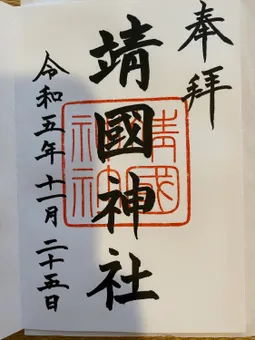 奉拝
靖國神社
靖國神社
令和五年十一月二十五日